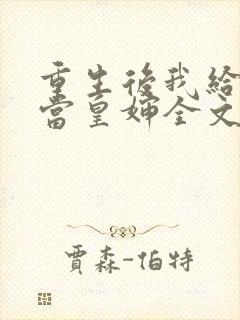 重生後我給
當皇婶全文
賈森-伯特